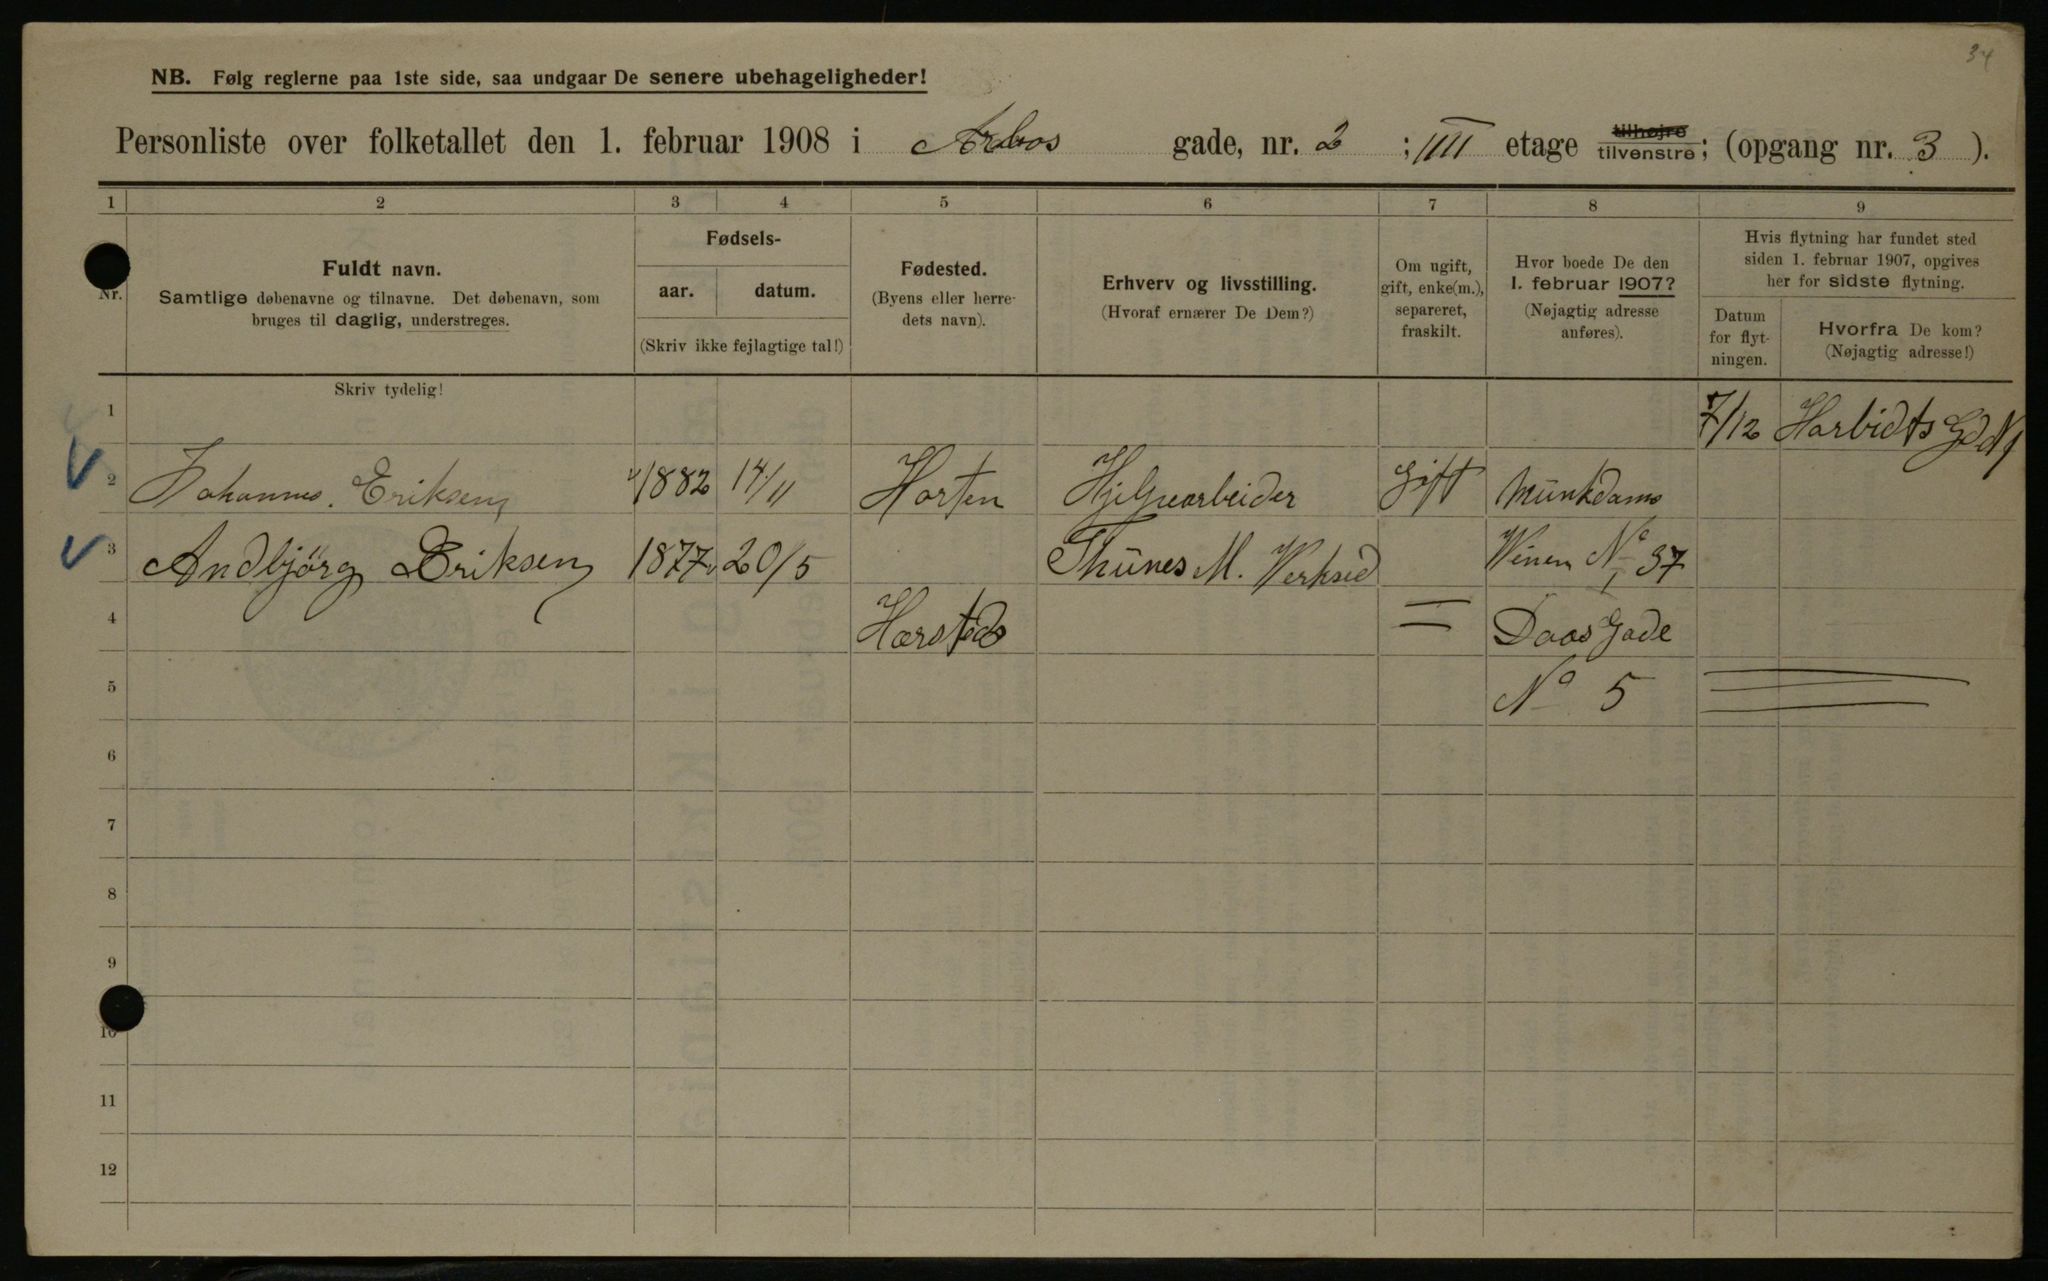 34
NB. Følg reglerne paa 1ste side, saa undgaar De senere ubehageligheder!
Personliste over folketallet den 1. februar 1908 i Arbos gade, nr. 2 ; IIII etage tilhøjre tilvenstre; (opgang nr. 3 ).
1 2 3 4 5 6 7 8 9
Nr.
Fuldt navn.
Samtlige døbenavne og tilnavne. Det døbenavn, som
bruges til daglig, understreges.
Fødsels-
aar. datum.
(Skriv ikke fejlagtige tal!)
Fødested.
(Byens eller herre-
dets navn).
Erhverv og livsstilling.
(Hvoraf ernærer De Dem?)
Om ugift,
gift, enke(m.),
separeret,
fraskilt.
Hvor boede De den
1. februar 1907?
(Nøjagtig adresse
anføres).
Hvis flytning har fundet sted
siden 1. februar 1907, opgives
her for sidste flytning.
Datum
for flyt-
ningen.
Hvorfra De kom?
(Nøjagtig adresse!)
Skriv tydelig!
1 7/12 Harbidts Gd N 1
2 Johannes. Eriksen 1882 14/11 Horten Hjelpearbeider Gift Munkdams
3 Andbjörg Eriksen 1877 20/5 Thünes M. Verksed Veien No 37
4 Harsted = Daas Gade
5 No 5
6
7
8
9
10
11
12